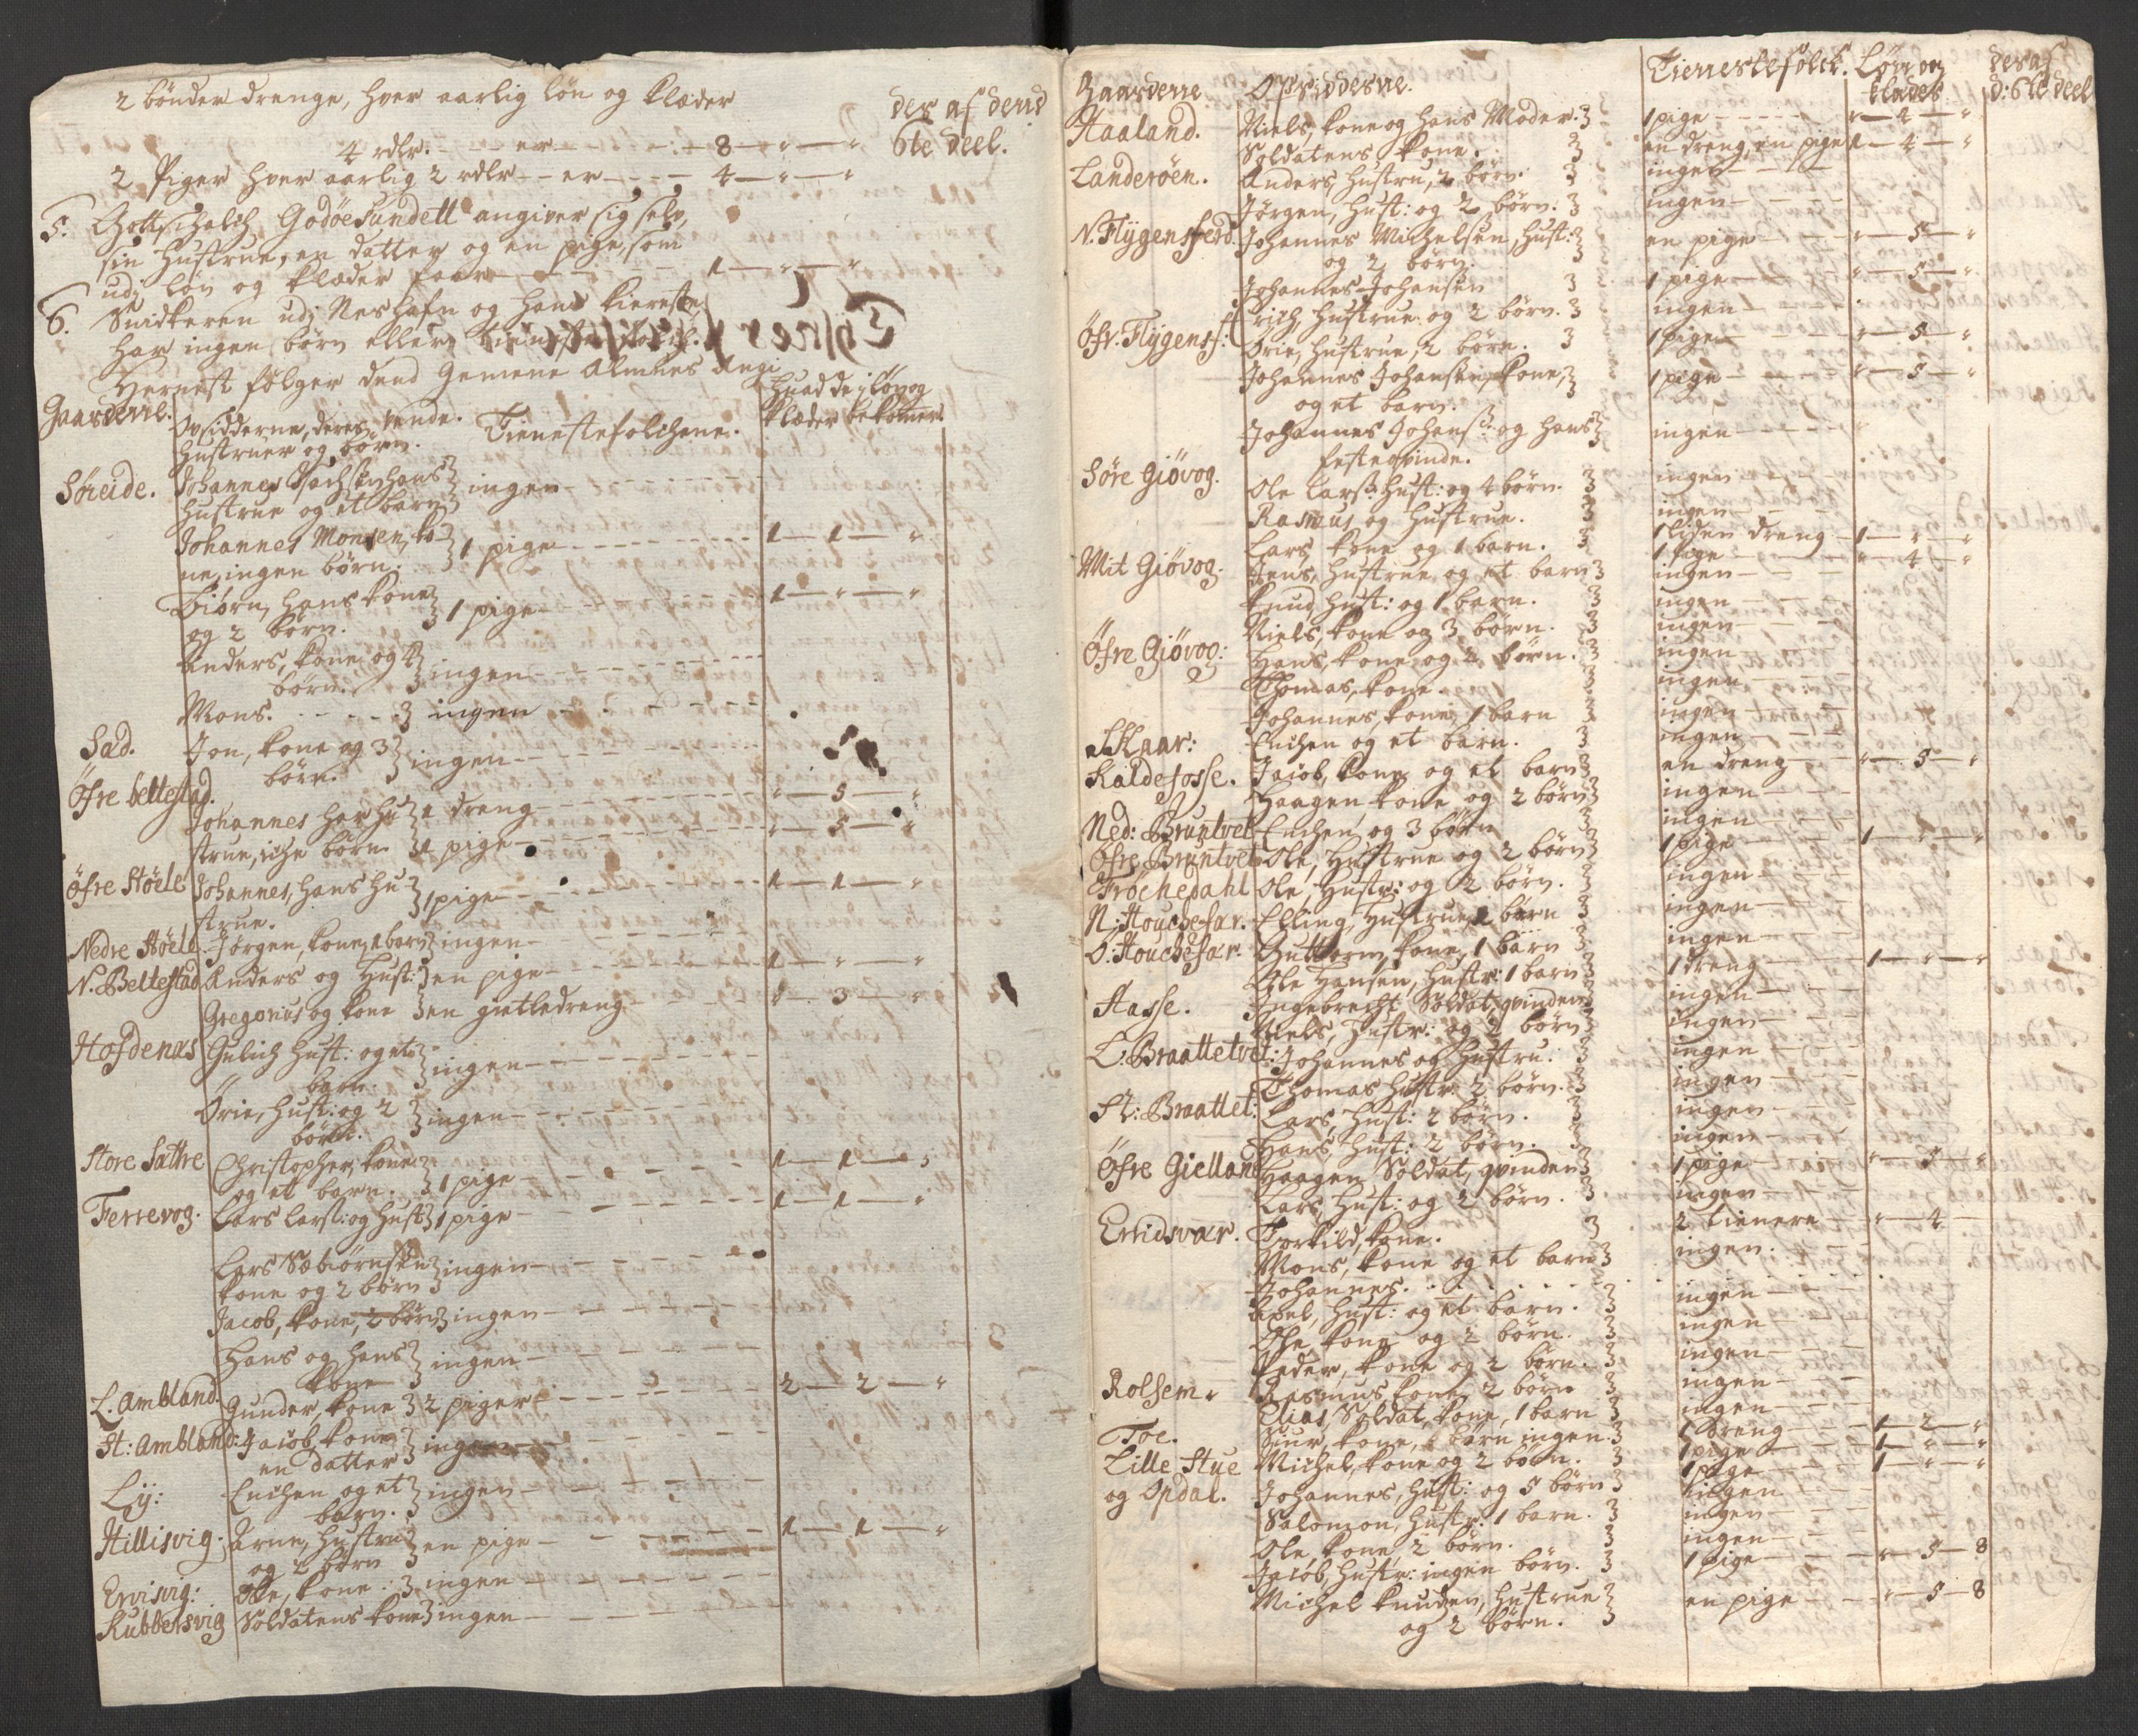 2 bønder drenge, hver aarlig løn og klæder
4 rdlr. - - er - - - - 8 - " - "
des af dend
6te deel.
2 Piger hver aarlig 2 rdlr - - er - - - 4 - " - "
5. Gottschalch Godøesundett angiver sig selv,
sin Hustrue, en datter og en pige, som
udj løn og klæder faar - - - - - 1 - " - "
6. Snidkeren udj Neshafn og hans kiereste
har ingen børn eller tieniste folch.
Hernest følger dend Gemene Almues Angi
vende.
Gaarderne. Opsidderne, deres Hustruer og børn. Tienestefolchene. Huad de i løn og klæder bekomer.
Søreide. Johannes Isachsen hans
hustrue og et barn } ingen - - - - - -
Johannes Monsen, ko-
ne, ingen børn. } 1 pige - - - - - - 1 - 1 - "
Biørn, hans kone
og 2 børn. } 1 pige - - - - - - 1 - " - "
Anders, kone og 4
børn. } ingen - - - - - -
Mons. - - - - } ingen - - - - - -
Sad. Jon, kone og 3
børn. } ingen - - - - - -
Øfre beltestad. Johannes har hu } 1 dreng - - - - " - 5 - "
strue, iche børn } 1 pige - - - - " - 5 - "
Øfre Støele Johannes, hans hu
strue. } 1 pige - - - - 1 - 1 - "
Nedre Støele Jørgen, kone, 1 barn } ingen -
N. Beltestad Anders og Hust: } en pige - - - - 1 - " - "
Gregorius og kone } en gietledreng - - " - 3 - "
Hofdenæs Gulich Hust: og et
barn. } ingen - - - -
Ørie, Hust: og 2
børn. } ingen - - - -
Store Sæthre Christopher, kone
og et barn. } 1 pige - - - - 1 - 1 - "
Ferrevog. Lars Larss: og Hust } 1 pige - - - - 1 - 1 - "
Lars Sæbiørnsen
kone og 2 børn } ingen - - - -
Jacob, kone, 2 børn } ingen - - - -
Hans og hans
kone } ingen - - - -
L. Ambland. Gunder, kone } 2 piger - - - - 2 - 2 - "
St: Ambland: Jacob, kone
en datter } ingen - - - -
Ly: Enchen og et
barn. } ingen - - - -
Hillisvig. Arne, hustru
og 2 børn } en pige - - - - 1 - 1 - "
Ervisvig: Ole, kone : } ingen - - - -
Kubbersvig Soldatens kone } ingen - - - -
Gaarderne Opsidderne. Tienestefolch. Løn og klæder des af d: 6te deel
Haaland. Niels, kone og hans Moder. } 1 pige - - - - " - 4 - "
Soldatens kone. } en dreng, en pige 1 - 4 - "
Landerøen. Anders, hustru, 2 børn. } ingen - - -
Jørgen, Hust: og 2 børn. } ingen - - -
N. Flygensferd. Johannes Michelsen, Hust:
og 2 børn. } en pige - - - " - 5 - "
Johannes Johansen } 1 pige - - - " - 5 - "
Erich, hustrue og 2 børn. } ingen - - -
Øfv. Flygensf: Ørie, hustrue, 2 børn. } 1 pige - - - " - 5 - "
Johannes Johansen, kone,
og et barn. } 1 pige - - - " - 5 - "
Johannes Johanss: og hans
festeqvinde. } ingen - - -
Søre Giøvog. Ole Larss: Hust: og 4 børn. } ingen - - -
Rasmus og hustrue. } ingen - - -
Lars kone og 1 barn. } 1 liden dreng 1 - " - "
1 pige - - " - 4 - "
Mit Giøvog. Jens, hustrue og et barn } ingen - - -
Knud, Hust: og 1 barn. } ingen - - -
Niels, kone og 3 børn. } ingen - - -
Øfre Giøvog: Hans, kone og 2 børn. } ingen - - -
Thomas, kone. } ingen - - -
Johannes, kone, 1 barn } ingen - - -
Skaar: Enchen og et barn. } ingen - - -
Kaldefosse. Jacob, kone og et barn } en dreng - - " - 5 - "
Haagen kone og 2 børn } ingen - - -
Ned: Bruntvet Enchen, og 3 børn } ingen - - -
Øfre Bruntvet Ole, Hustrue og 2 børn } 1 pige - - 1 - " - "
Frøchedahl Ole, Hustr: og 2 børn. } ingen - - -
N: Houchefær. Elling, Hustrue, 2 børn } ingen - - -
O: Houchefær. Guttorm, kone, 1 barn } ingen - - -
Ole Hansen, hustr: 1 barn } 1 dreng - - 1 - " - "
Hasse. Ingebrecht Soldat, qvinden } ingen - - -
Niels, Hustr: og 2 børn } ingen - - -
L: Braattetvet: Johannes og hustru. } ingen - - -
Thomas hustr: 2 børn. } ingen - - -
St: Braattet: Lars, Hust: 2 børn. } ingen - - -
Hans, Hust: 2 børn. } ingen - - -
Øfre Gielland Haagen Soldat, qvinden } 1 pige - - " - 5 - "
Lars, Hust: og 2 børn. } ingen - - -
Ervidsvær. Torkild, kone. } 2 tienere - - " - 4 -
Mons, kone og et barn } ingen. - -
Johannes. - - - - - - -
Axel, Hust: og et barn. } ingen - - -
Ole, kone og 2 børn. } ingen - - -
Peder, kone og 2 børn. } ingen - - -
Rolsem. Rasmus kone, 2 børn } ingen - - -
Elias, Soldat, kone, 1 barn } ingen - - -
Toe. Siur, kone, børn ingen. } 1 dreng - - 1 - 2 - "
Lille Stue Michel, kone og 2 børn. } 1 pige - - 1 - " - "
1 pige - - 1 - " - "
og Opdal. Johannes, Hust: og 5 børn } ingen - - -
Salomon, Hustr: 1 barn. } ingen - - -
Ole kone 2 børn. } ingen - - -
Jacob, Hustr: ingen børn. } 1 pige - - - " - 5 - 8
Michel Knudsen, Hustrue
og 2 børn. } en pige - - - " - 5 - 8